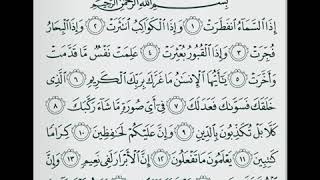 بِسْمِ اللَّهِ الرَّحْمَٰنِ الرَّحِيمِ
إِذَا السَّمَاءُ انفَطَرَتْ ١ وَإِذَا الْكَوَاكِبُ انتَثَرَتْ ٢ وَإِذَا الْبِحَارُ
فُجِّرَتْ ٣ وَإِذَا الْقُبُورُ بُعْثِرَتْ ٤ عَلِمَتْ نَفْسٌ مَّا قَدَّمَتْ
وَأَخَّرَتْ ٥ يَا أَيُّهَا الْإِنسَٰنُ مَا غَرَّكَ بِرَبِّكَ الْكَرِيمِ ٦ الَّذِي
خَلَقَكَ فَسَوَّىٰكَ فَعَدَلَكَ ٧ فِي أَيِّ صُورَةٍ مَّا شَاءَ رَكَّبَكَ ٨
كَلَّا بَلْ تُكَذِّبُونَ بِالدِّينِ ٩ وَإِنَّ عَلَيْكُمْ لَحَٰفِظِينَ ١٠ كِرَامًا
كَٰتِبِينَ ١١ يَعْلَمُونَ مَا تَفْعَلُونَ ١٢ إِنَّ الْأَبْرَارَ لَفِي نَعِيمٍ ١٣